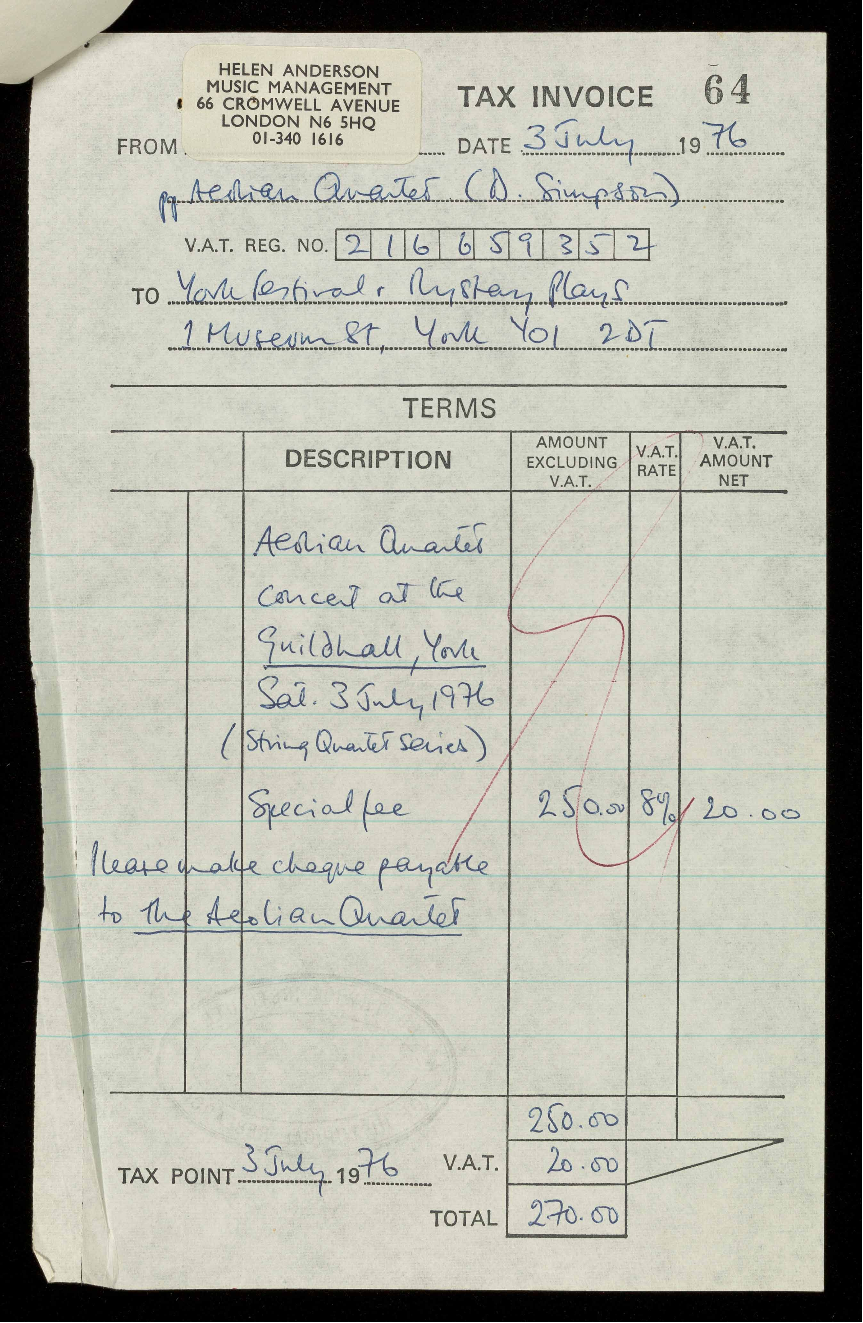 HELEN ANDERSON
MUSIC MANAGEMENT
66 CROMWELL AVENUE
LONDON N6 5HQ
01-340 1616
TAX INVOICE 64
FROM DATE 3 July 1976
pp Aeolian Quartet (D. Simpson)
V.A.T. REG. NO. 216 6593 52
TO York Festival & Mystery Plays
1 Museum St, York YO1 2DT
TERMS
DESCRIPTION AMOUNT EXCLUDING V.A.T. V.A.T. RATE V.A.T. AMOUNT NET
Aeolian Quartet
Concert at the
Guildhall, York
Sat. 3 July, 1976
(String Quartet Series)
Special fee 250.00 8% 20.00
Please make cheque payable
to The Aeolian Quartet
250.00
TAX POINT 3 July 1976 V.A.T. 20.00
TOTAL 270.00